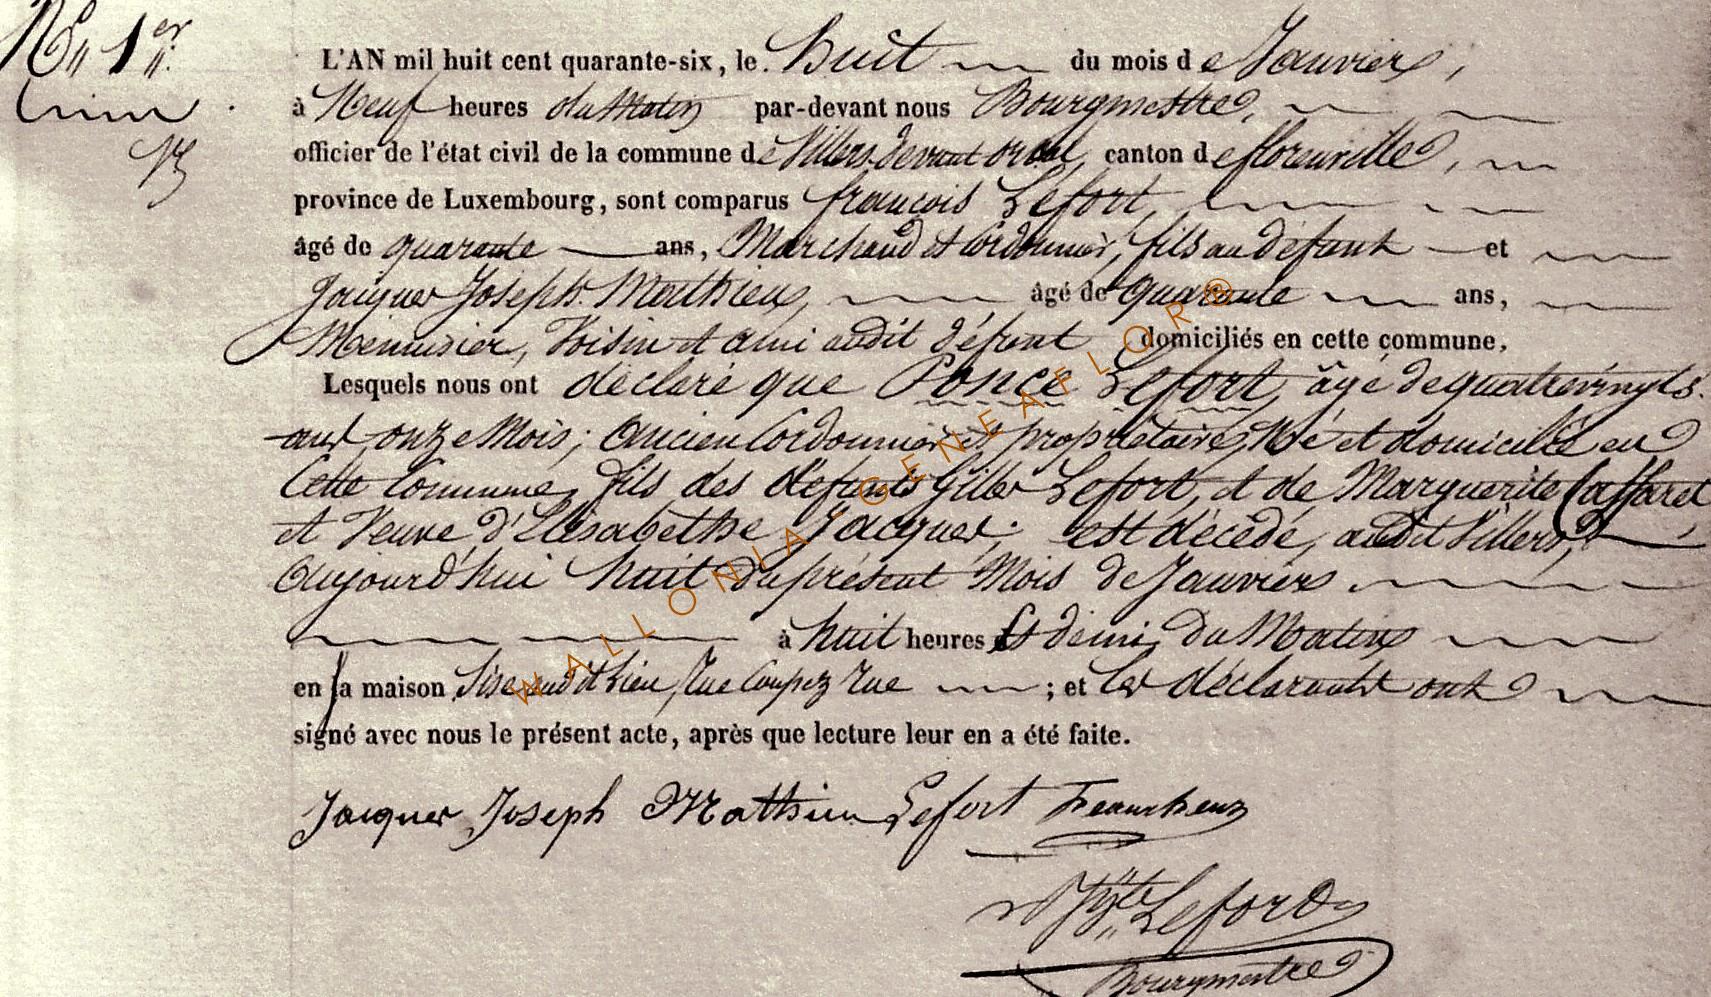 N° 1er
L'AN mil huit cent quarante-six, le huit du mois de Janvier,
à Neuf heures du Matin par-devant nous Bourgmestre,
officier de l'état civil de la commune de Villers devant orval, canton de florenville,
province de Luxembourg, sont comparus françois Lefort,
âgé de quarante ans, Marchand et Cordonnier, fils au défunt et
Jacques Joseph Mathieu, âgé de quarante ans,
Menuisier, Voisin et ami audit défunt domiciliés en cette commune,
Lesquels nous ont déclaré que Ponce Lefort, âgé de quatrevingts
ans onze Mois; ancien Cordonnier et propriétaire, Né et domicilié en
Cette Commune, fils des défunts Gilles Lefort, et de Marguerite Caffaret
et Veuve d'Elisabethe Jacques; est décédé, audit Villers,
Aujourd'hui huit du présent Mois de Janvier
à huit heures et demie du Matin
en la maison Sise audit Lieu, Rue Coupez rue ; et les déclarants ont
signé avec nous le présent acte, après que lecture leur en a été faite.
Jacques Joseph Mathieu Lefort
Hyte Lefort
Bourgmestre
WALLONIA-GENEAFLOR®